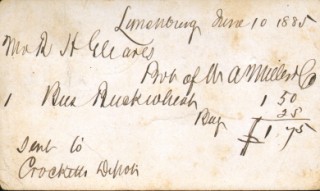 Lunenburg June 10 1885
Mr R H Gleaves
Bot of W A Miller & Co
1 Bus Buckwheat 1 50
Bag 25
$1.75
Sent to
Crocketts Depot